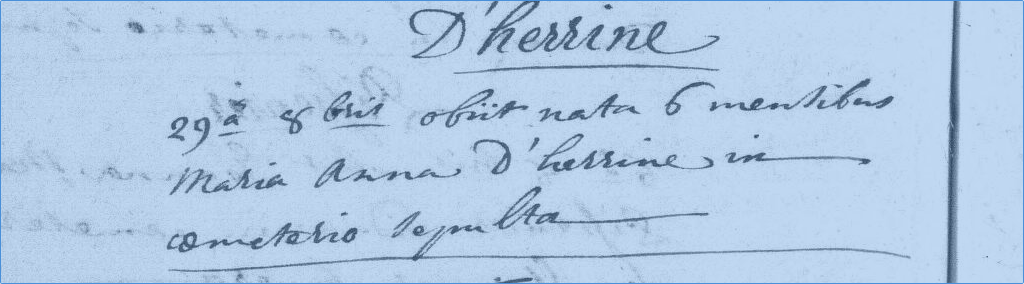 D'herrine
29ª 8bris obiit nata 6 mensibus
Maria Anna D'herrine in
cœmeterio sepulta